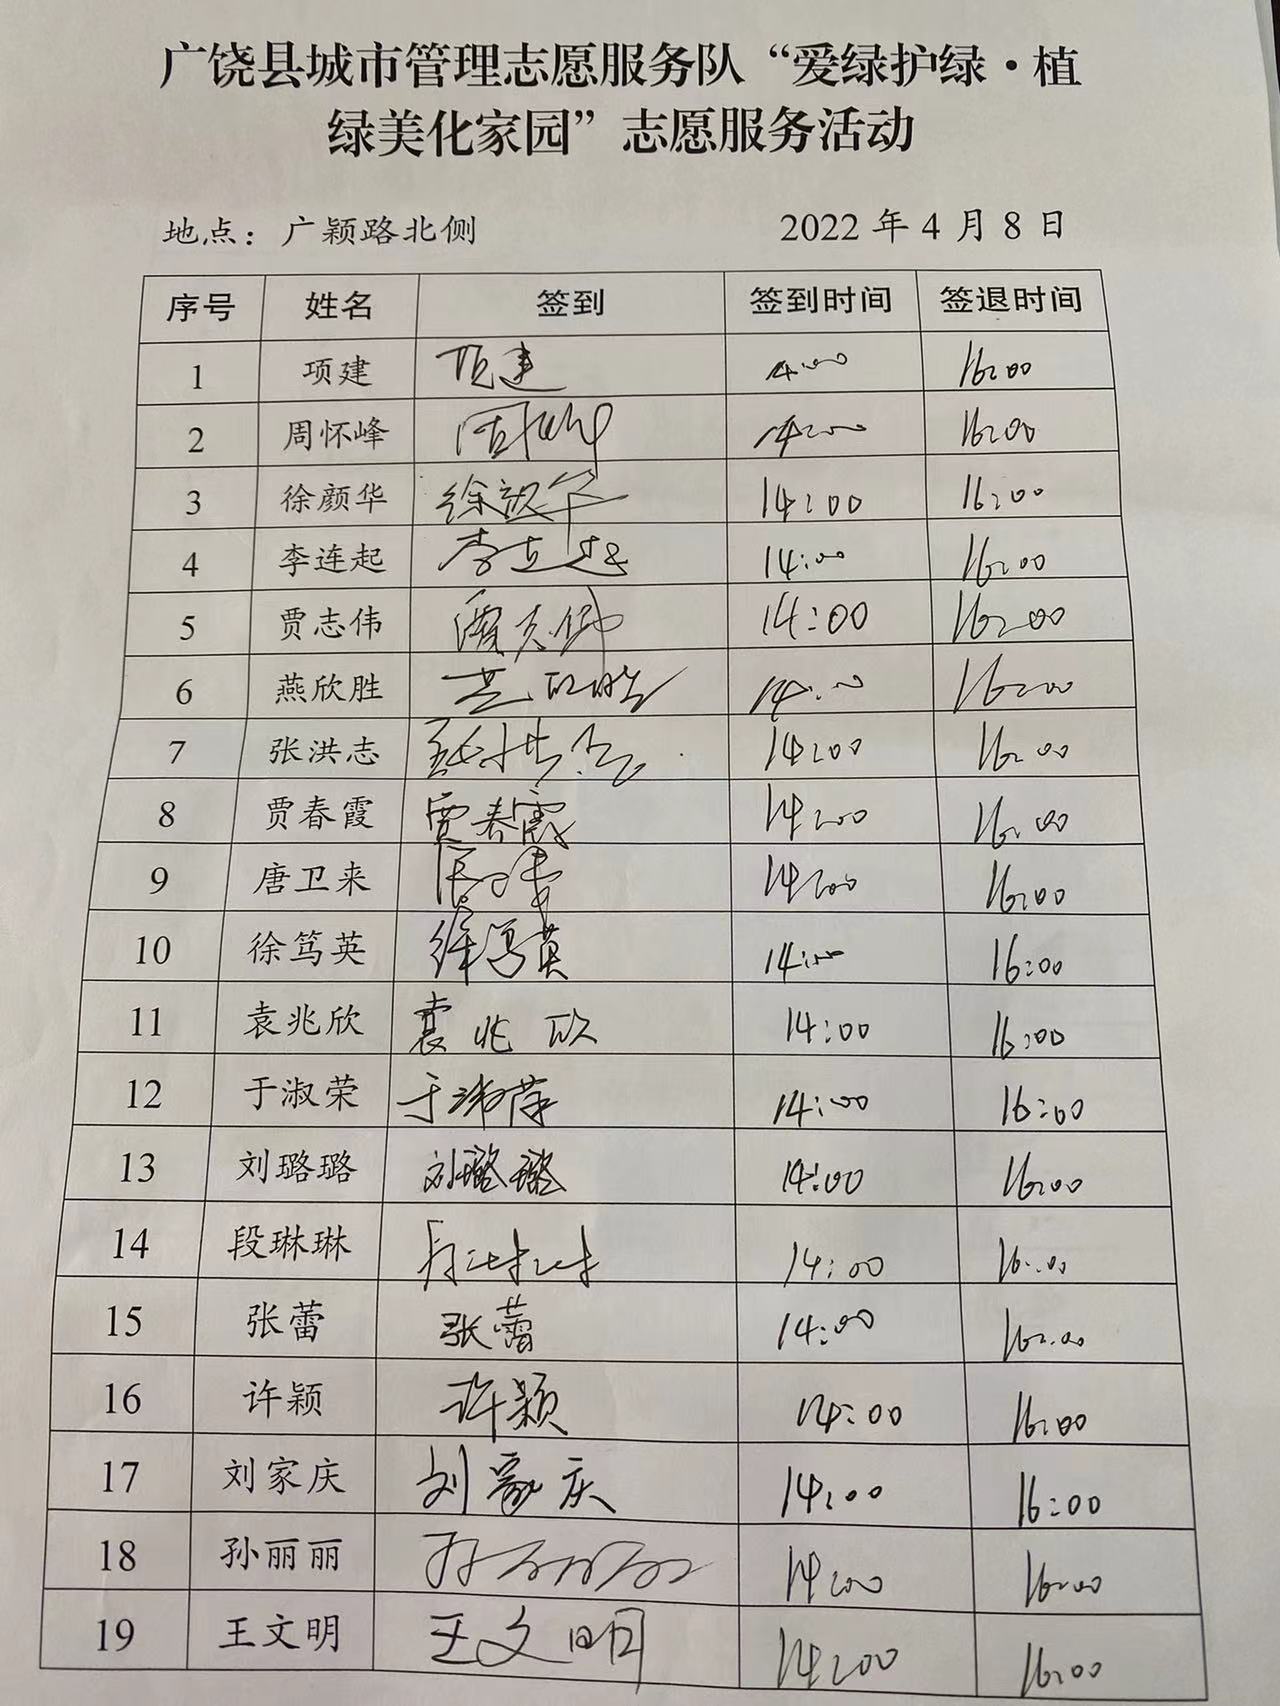 广饶县城市管理志愿服务队“爱绿护绿·植
绿美化家园”志愿服务活动
地点：广颖路北侧 2022 年 4 月 8 日
序号 姓名 签到 签到时间 签退时间
1 项建 项建 14:00 16:00
2 周怀峰 周怀峰 14:00 16:00
3 徐颜华 徐颜华 14:00 16:00
4 李连起 李连起 14:00 16:00
5 贾志伟 贾志伟 14:00 16:00
6 燕欣胜 燕欣胜 14:00 16:00
7 张洪志 张洪志 14:00 16:00
8 贾春霞 贾春霞 14:00 16:00
9 唐卫来 唐卫来 14:00 16:00
10 徐笃英 徐笃英 14:00 16:00
11 袁兆欣 袁兆欣 14:00 16:00
12 于淑荣 于淑荣 14:00 16:00
13 刘璐璐 刘璐璐 14:00 16:00
14 段琳琳 段琳琳 14:00 16:00
15 张蕾 张蕾 14:00 16:00
16 许颖 许颖 14:00 16:00
17 刘家庆 刘家庆 14:00 16:00
18 孙丽丽 孙丽丽 14:00 16:00
19 王文明 王文明 14:00 16:00